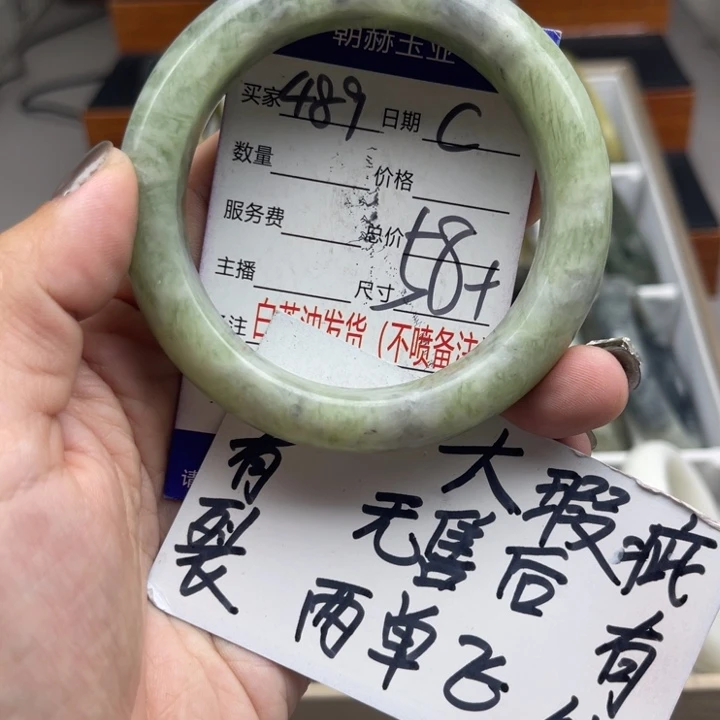 朝赫玉业
买家 489 日期 C
数量 价格
服务费 总价
主播 尺寸 58+
注 白茶油发货（不喷备注
请
有裂
大瑕疵
无售后
有
两单飞